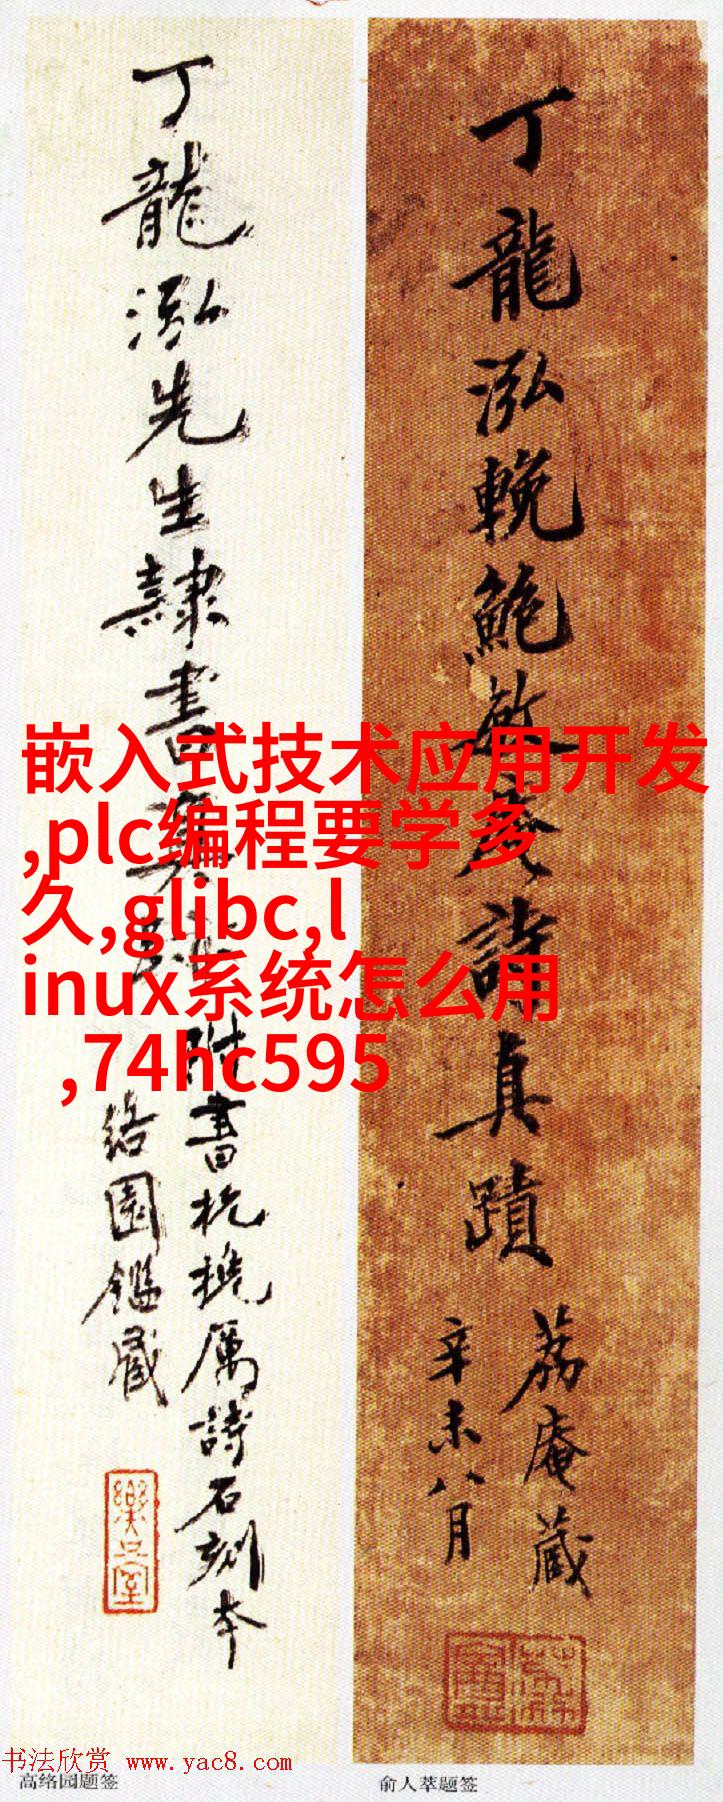 丁龍泓輓鮑敏庵詩真蹟
荔庵藏
辛未八月
丁龍泓先生隸書真蹟
附書杭桃厲詩石刻本
絡園鑑藏
嵌入式技术应用开发
,plc编程要学多
久,glibc,l
inux系统怎么用
,74hc595
书法欣赏 www.yac8.com
高络园题签
俞人萃题签